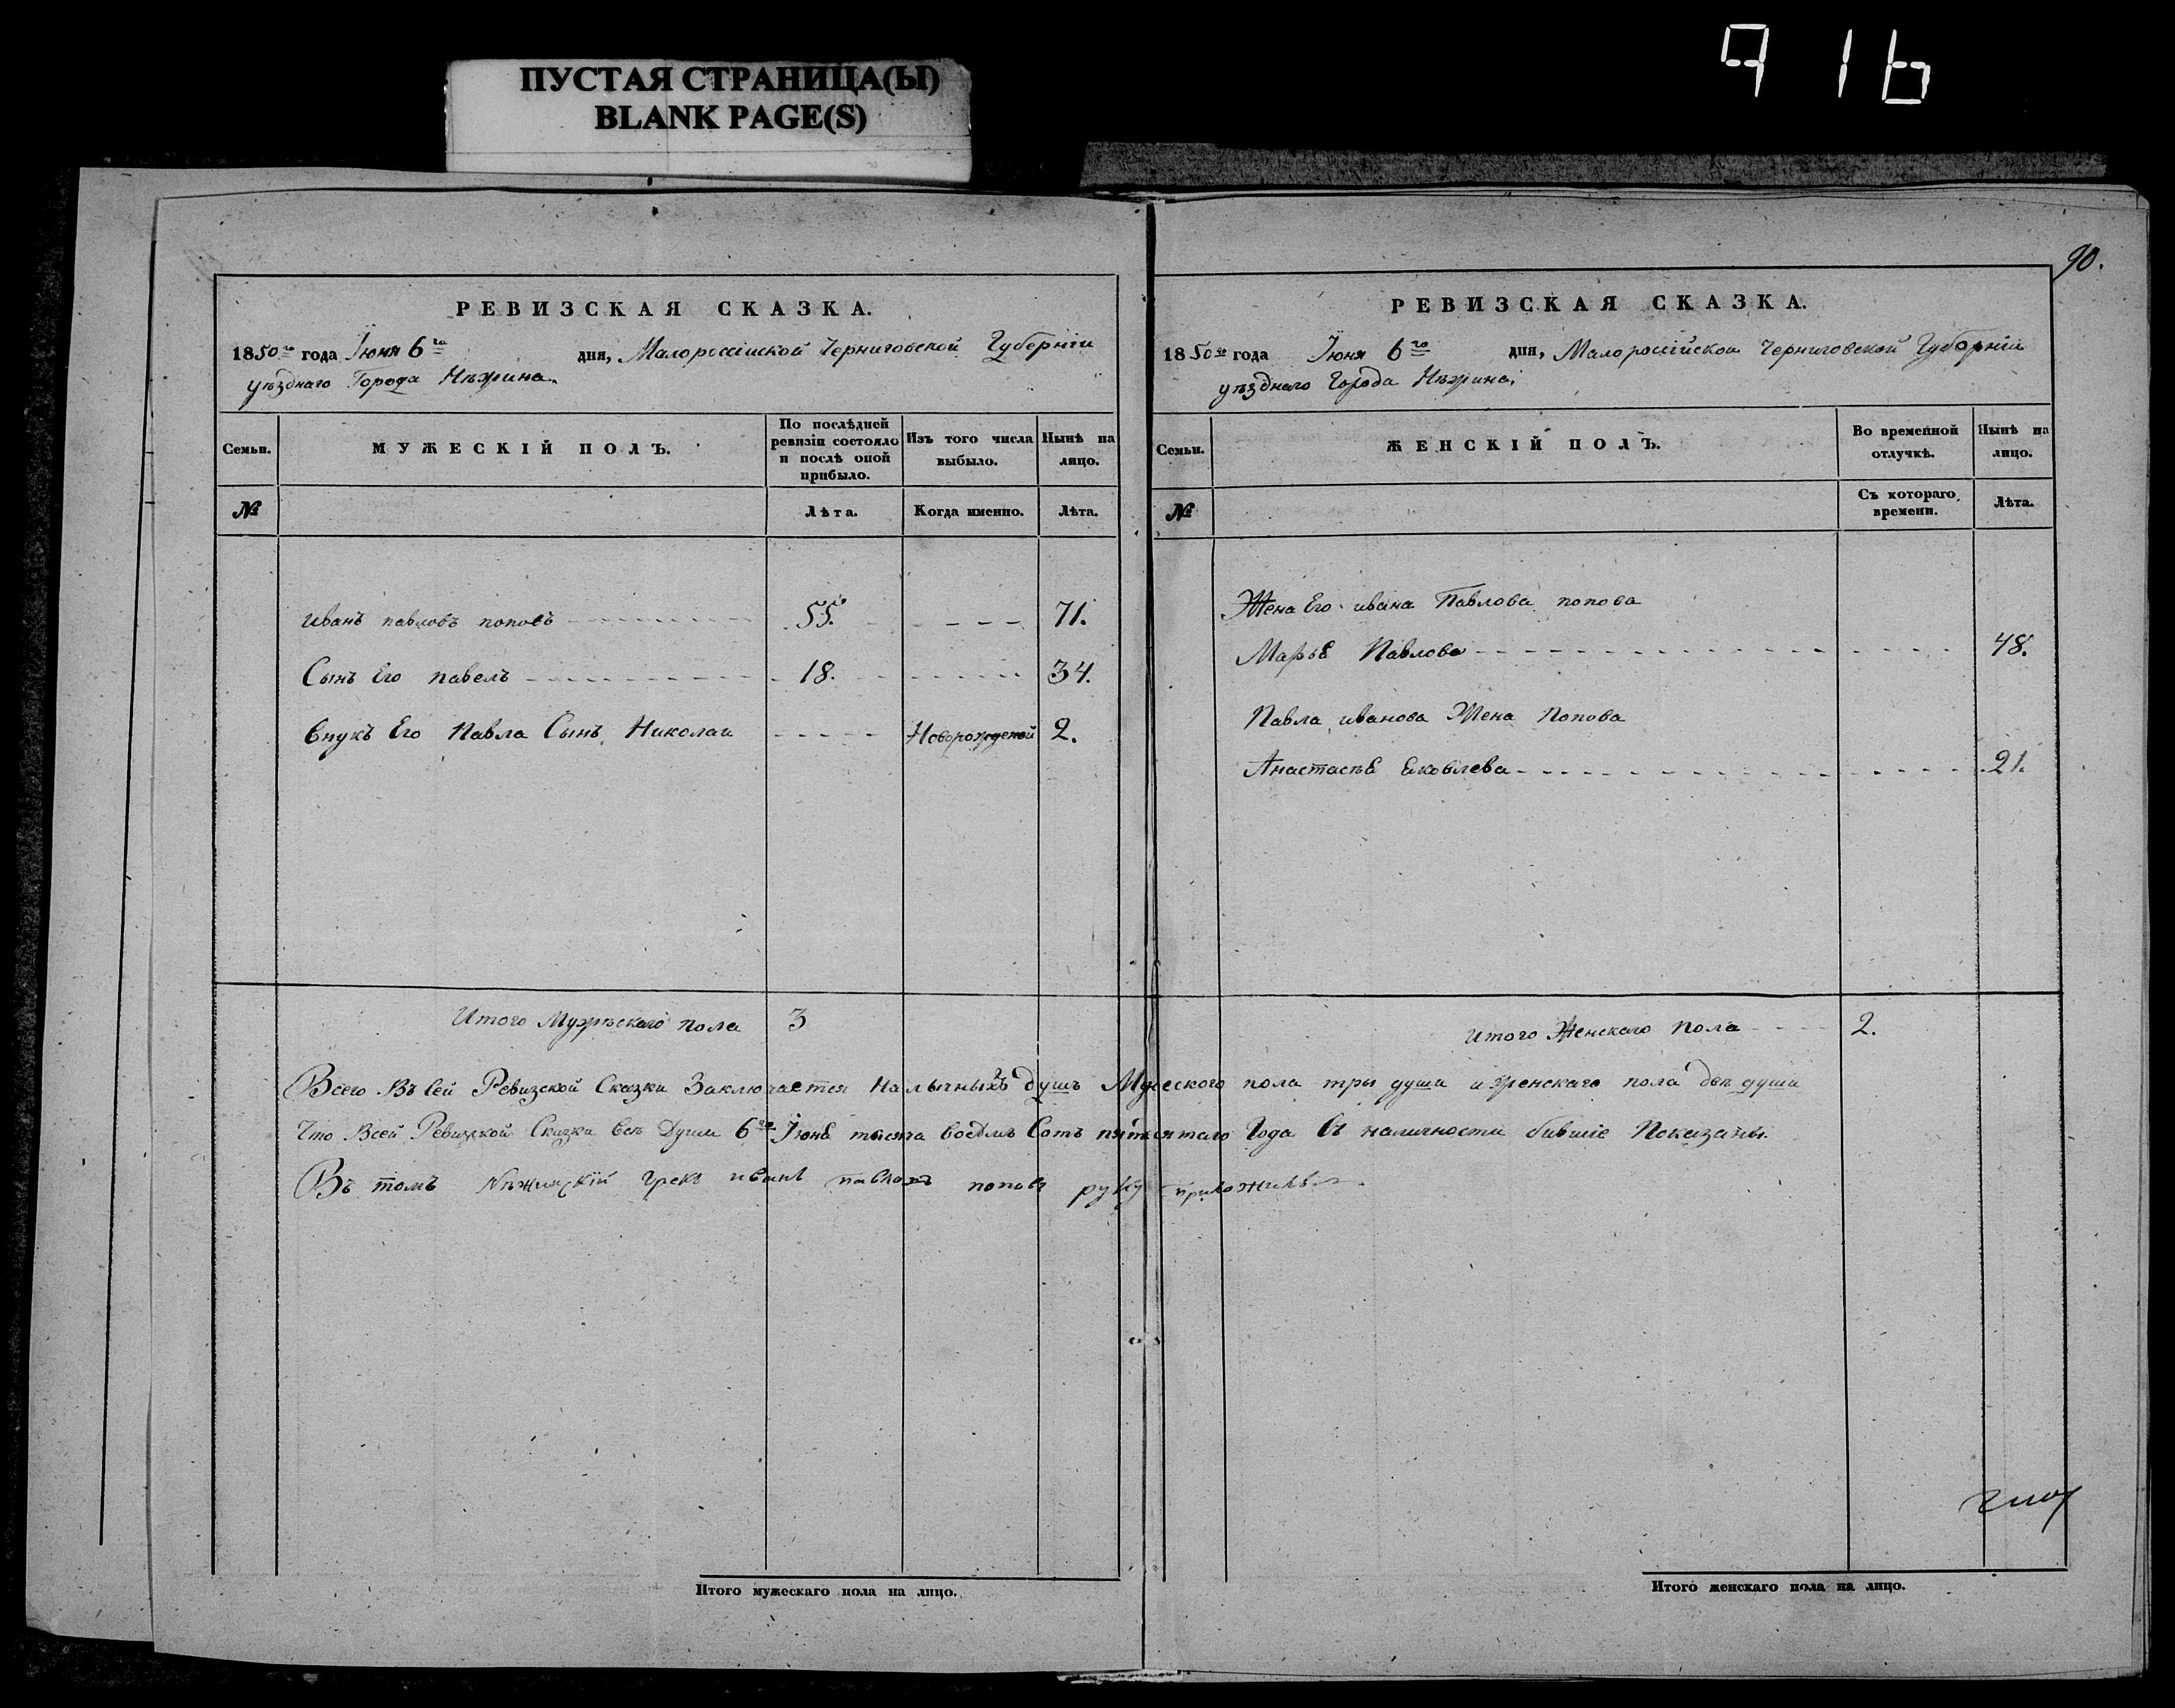 916
ПУСТАЯ СТРАНИЦА(Ы)
BLANK PAGE(S)
РЕВИЗСКАЯ СКАЗКА.
1850го года Їюня 6го дня, Малороссійской Черниговской Губерніи
уѣзднаго Города Нѣжина.
Семьи.
МУЖЕСКІЙ ПОЛЪ.
По послѣдней ревизіи состояло и послѣ оной прибыло.
Изъ того числа выбыло.
Нынѣ на лицо.
№
Лѣта.
Когда именно.
Лѣта.
иванъ павловъ поповъ 55. 71.
Сынъ Его павелъ 18. 34.
Внукъ Его Павла Сынъ Николаи Новорожденой 2.
Итого Мужескаго пола 3
90.
РЕВИЗСКАЯ СКАЗКА.
1850го года Їюня 6го дня, Малоросійской Черниговской Губорніи
уѣзднаго Города Нѣжина.
Семьи.
ЖЕНСКІЙ ПОЛЪ.
Во временной отлучкѣ.
Нынѣ на лицо.
№
Съ котораго времени.
Лѣта.
Жена Его ивана Павлова попова
Марьѣ Павлова 48.
Павла иванова Жена Попова
Анастасьѣ 21.
итого Женскаго пола 2.
Всего Въ сей Ревизской Сказки Заключается Налычныхъ душъ Мужеского пола тры души и женскаго пола двѣ души
Что Всей Ревизской Сказки всѣ Души 6го Їюнѣ тысяча восѣмъ Сотъ пятъятаго Года въ наличности бившіе Показаны.
Въ томъ Нѣжинскій Грекъ иванъ павловъ поповъ руку приложилъ
Итого мужескаго пола на лицо.
Итого женскаго пола на лицо.